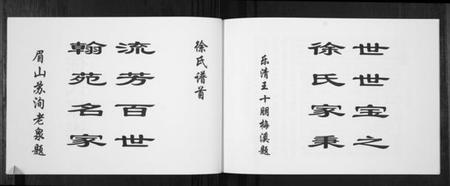 世世宝之
徐氏家乘
乐清王十朋梅溪题
徐氏谱首
流芳百世
翰苑名家
眉山苏洵老泉题